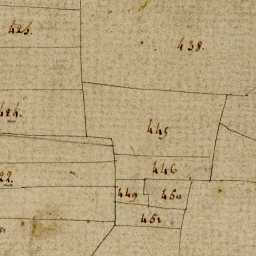 425.
438.
424.
445
446
22.
449
450
451